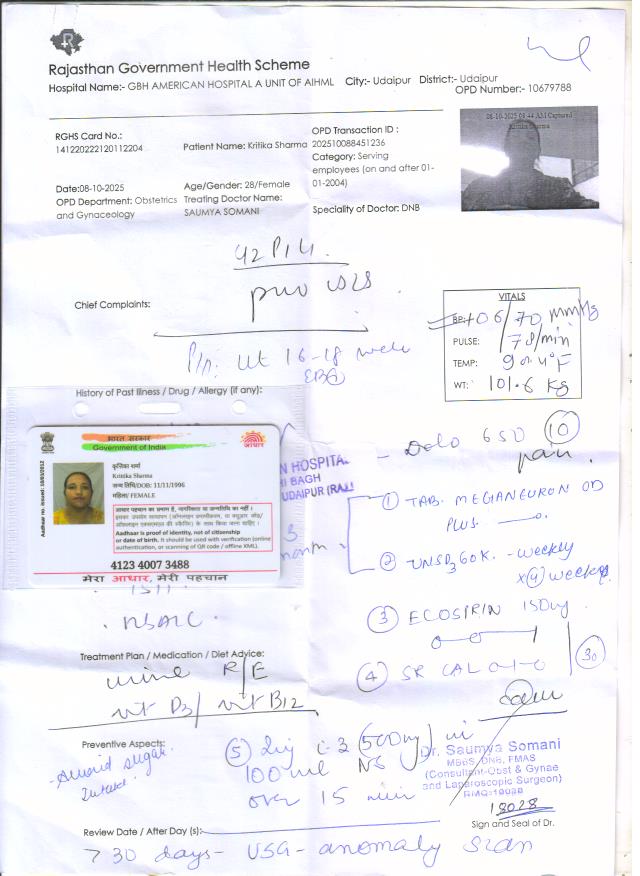 Rajasthan Government Health Scheme
Hospital Name:- GBH AMERICAN HOSPITAL A UNIT OF AIHML City:- Udaipur District:- Udaipur
OPD Number:- 10679788
RGHS Card No.:
141220222120112204
Patient Name: Kritika Sharma
OPD Transaction ID :
202510088451236
Category: Serving
employees (on and after 01-
01-2004)
08-10-2025 08:44 AM Captured
Kritika Sharma
Date:08-10-2025
OPD Department: Obstetrics
and Gynaceology
Age/Gender: 28/Female
Treating Doctor Name:
SAUMYA SOMANI
Speciality of Doctor: DNB
Chief Complaints:
VITALS
BP: 106/70 mmHg
PULSE: 78/min
TEMP:
WT: 101.6 kg
16-18 week
History of Past Illness / Drug / Allergy (if any):
भारत सरकार
Government of India
आधार
Aadhaar no. issued: 18/05/2012
कृतिका शर्मा
Kritika Sharma
जन्म तिथि/DOB: 11/11/1996
महिला/ FEMALE
आधार पहचान का प्रमाण है, नागरिकता या जन्मतिथि का नहीं ।
Aadhaar is proof of identity, not of citizenship
or date of birth. It should be used with verification (online
authentication, or scanning of QR code / offline XML).
4123 4007 3488
मेरा आधार, मेरी पहचान
N HOSPITAL
HI BAGH
UDAIPUR (RAJ.)
- Dolo 650 (10)
pain.
① TAB. MEGANEURON OD
PLUS
② 60K. - weekly
x(4) weeks
③ ECOSPRIN 150mg
④ SR CAL 0-1-0
30
Treatment Plan / Medication / Diet Advice:
urine R/E
vit D3/ vit B12
Preventive Aspects:
- Avoid sugar
Intake.
⑤ Inj (500mg) in
100 ml NS
over 15 min
Dr. Saumya Somani
MBBS, DNB, FMAS
(Consultant-Obst & Gynae
and Laparoscopic Surgeon)
18028
Sign and Seal of Dr.
Review Date / After Day (s):-
30 days - USG - anomaly scan